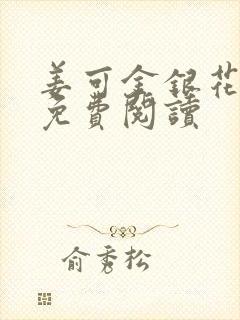 姜可金銀花
免費閱讀
俞秀松